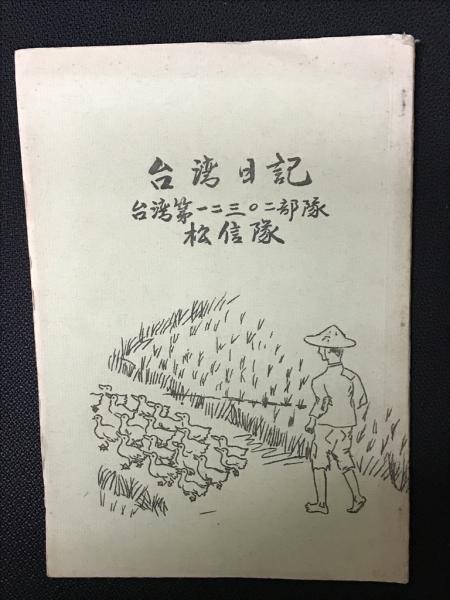 台湾日記
台湾第一二三〇二部隊
松信隊